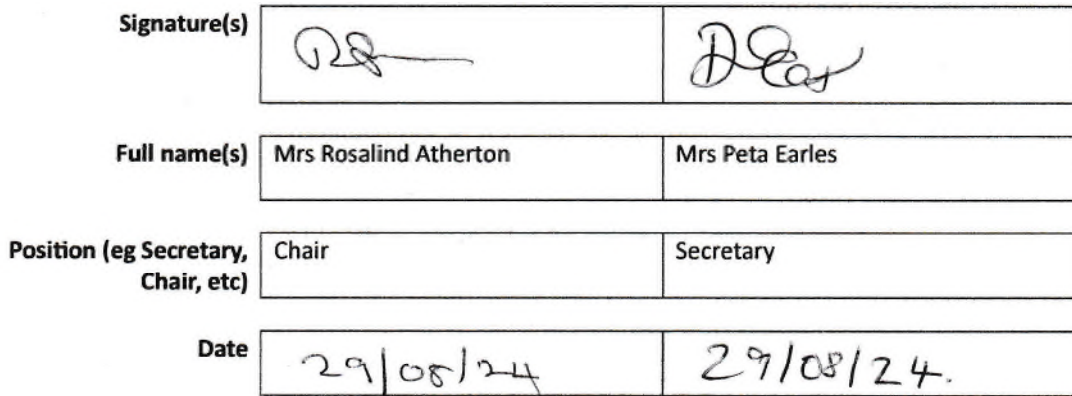 Signature(s)
Full name(s) Mrs Rosalind Atherton Mrs Peta Earles
Position (eg Secretary, Chair Secretary
Chair, etc)
Date 29/08/24 29/08/24.